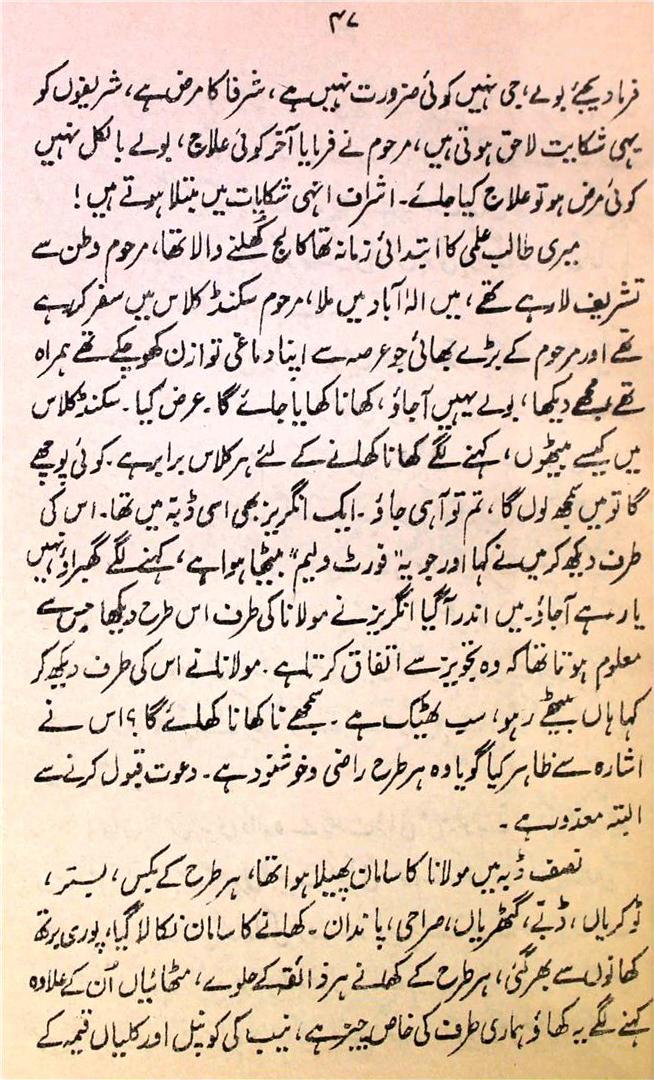 ۴۷
فرما دیجئے بولے، جی نہیں کوئی ضرورت نہیں ہے، شرفا کا مرض ہے، شریفوں کو
یہی شکایت لاحق ہوتی ہیں، مرحوم نے فرمایا آخر کوئی علاج، بولے بالکل نہیں
کوئی مرض ہو تو علاج کیا جائے۔ اشراف انہی شکایات میں مبتلا ہوتے ہیں!
میری طالب علمی کا ابتدائی زمانہ تھا کالج کھلنے والا تھا، مرحوم وطن سے
تشریف لا رہے تھے، میں الہٰ آباد میں ملا، مرحوم سکنڈ کلاس میں سفر کر رہے
تھے اور مرحوم کے بڑے بھائی جو عرصہ سے اپنا دماغی توازن کھو چکے تھے ہمراہ
تھے مجھے دیکھا، بولے یہیں آجاؤ، کھانا کھایا جائے گا۔ عرض کیا۔ سکنڈ کلاس
میں کیسے بیٹھوں، کہنے لگے کھانا کھلانے کے لئے ہر کلاس برابر ہے۔ کوئی پوچھے
گا تو میں سمجھ لوں گا، تم تو آہی جاؤ۔ ایک انگریز بھی اسی ڈبّہ میں تھا۔ اس کی
طرف دیکھ کر میں نے کہا اور جو یہ "فورٹ ولیم" بیٹھا ہوا ہے، کہنے لگے گھبراؤ نہیں
یار ہے آجاؤ۔ میں اندر آگیا انگریز نے مولانا کی طرف اس طرح دیکھا جس سے
معلوم ہوتا تھا کہ وہ تجویز سے اتفاق کرتا ہے۔ مولانا نے اس کی طرف دیکھ کر
کہا ہاں بیٹھے رہو، سب ٹھیک ہے۔ سمجھے نا کھانا کھائے گا؟ اس نے
اشارہ سے ظاہر کیا گویا وہ ہر طرح راضی و خوشنود ہے۔ دعوت قبول کرنے سے
البتہ معذور ہے۔
نصف ڈبہ میں مولانا کا سامان پھیلا ہوا تھا، ہر طرح کے بکس، بستر،
ٹوکریاں، ڈبّے، گٹھریاں، صراحی، پاندان۔ کھانے کا سامان نکالا گیا، پوری برتھ
کھانوں سے بھر گئی، ہر طرح کے کھانے ہر ذائقہ کے حلوے، مٹھائیاں اُن کے علاوہ
کہنے لگے یہ کھاؤ ہماری طرف کی خاص چیز ہے، نیب کی کونپل اور کلیاں قیمہ کے